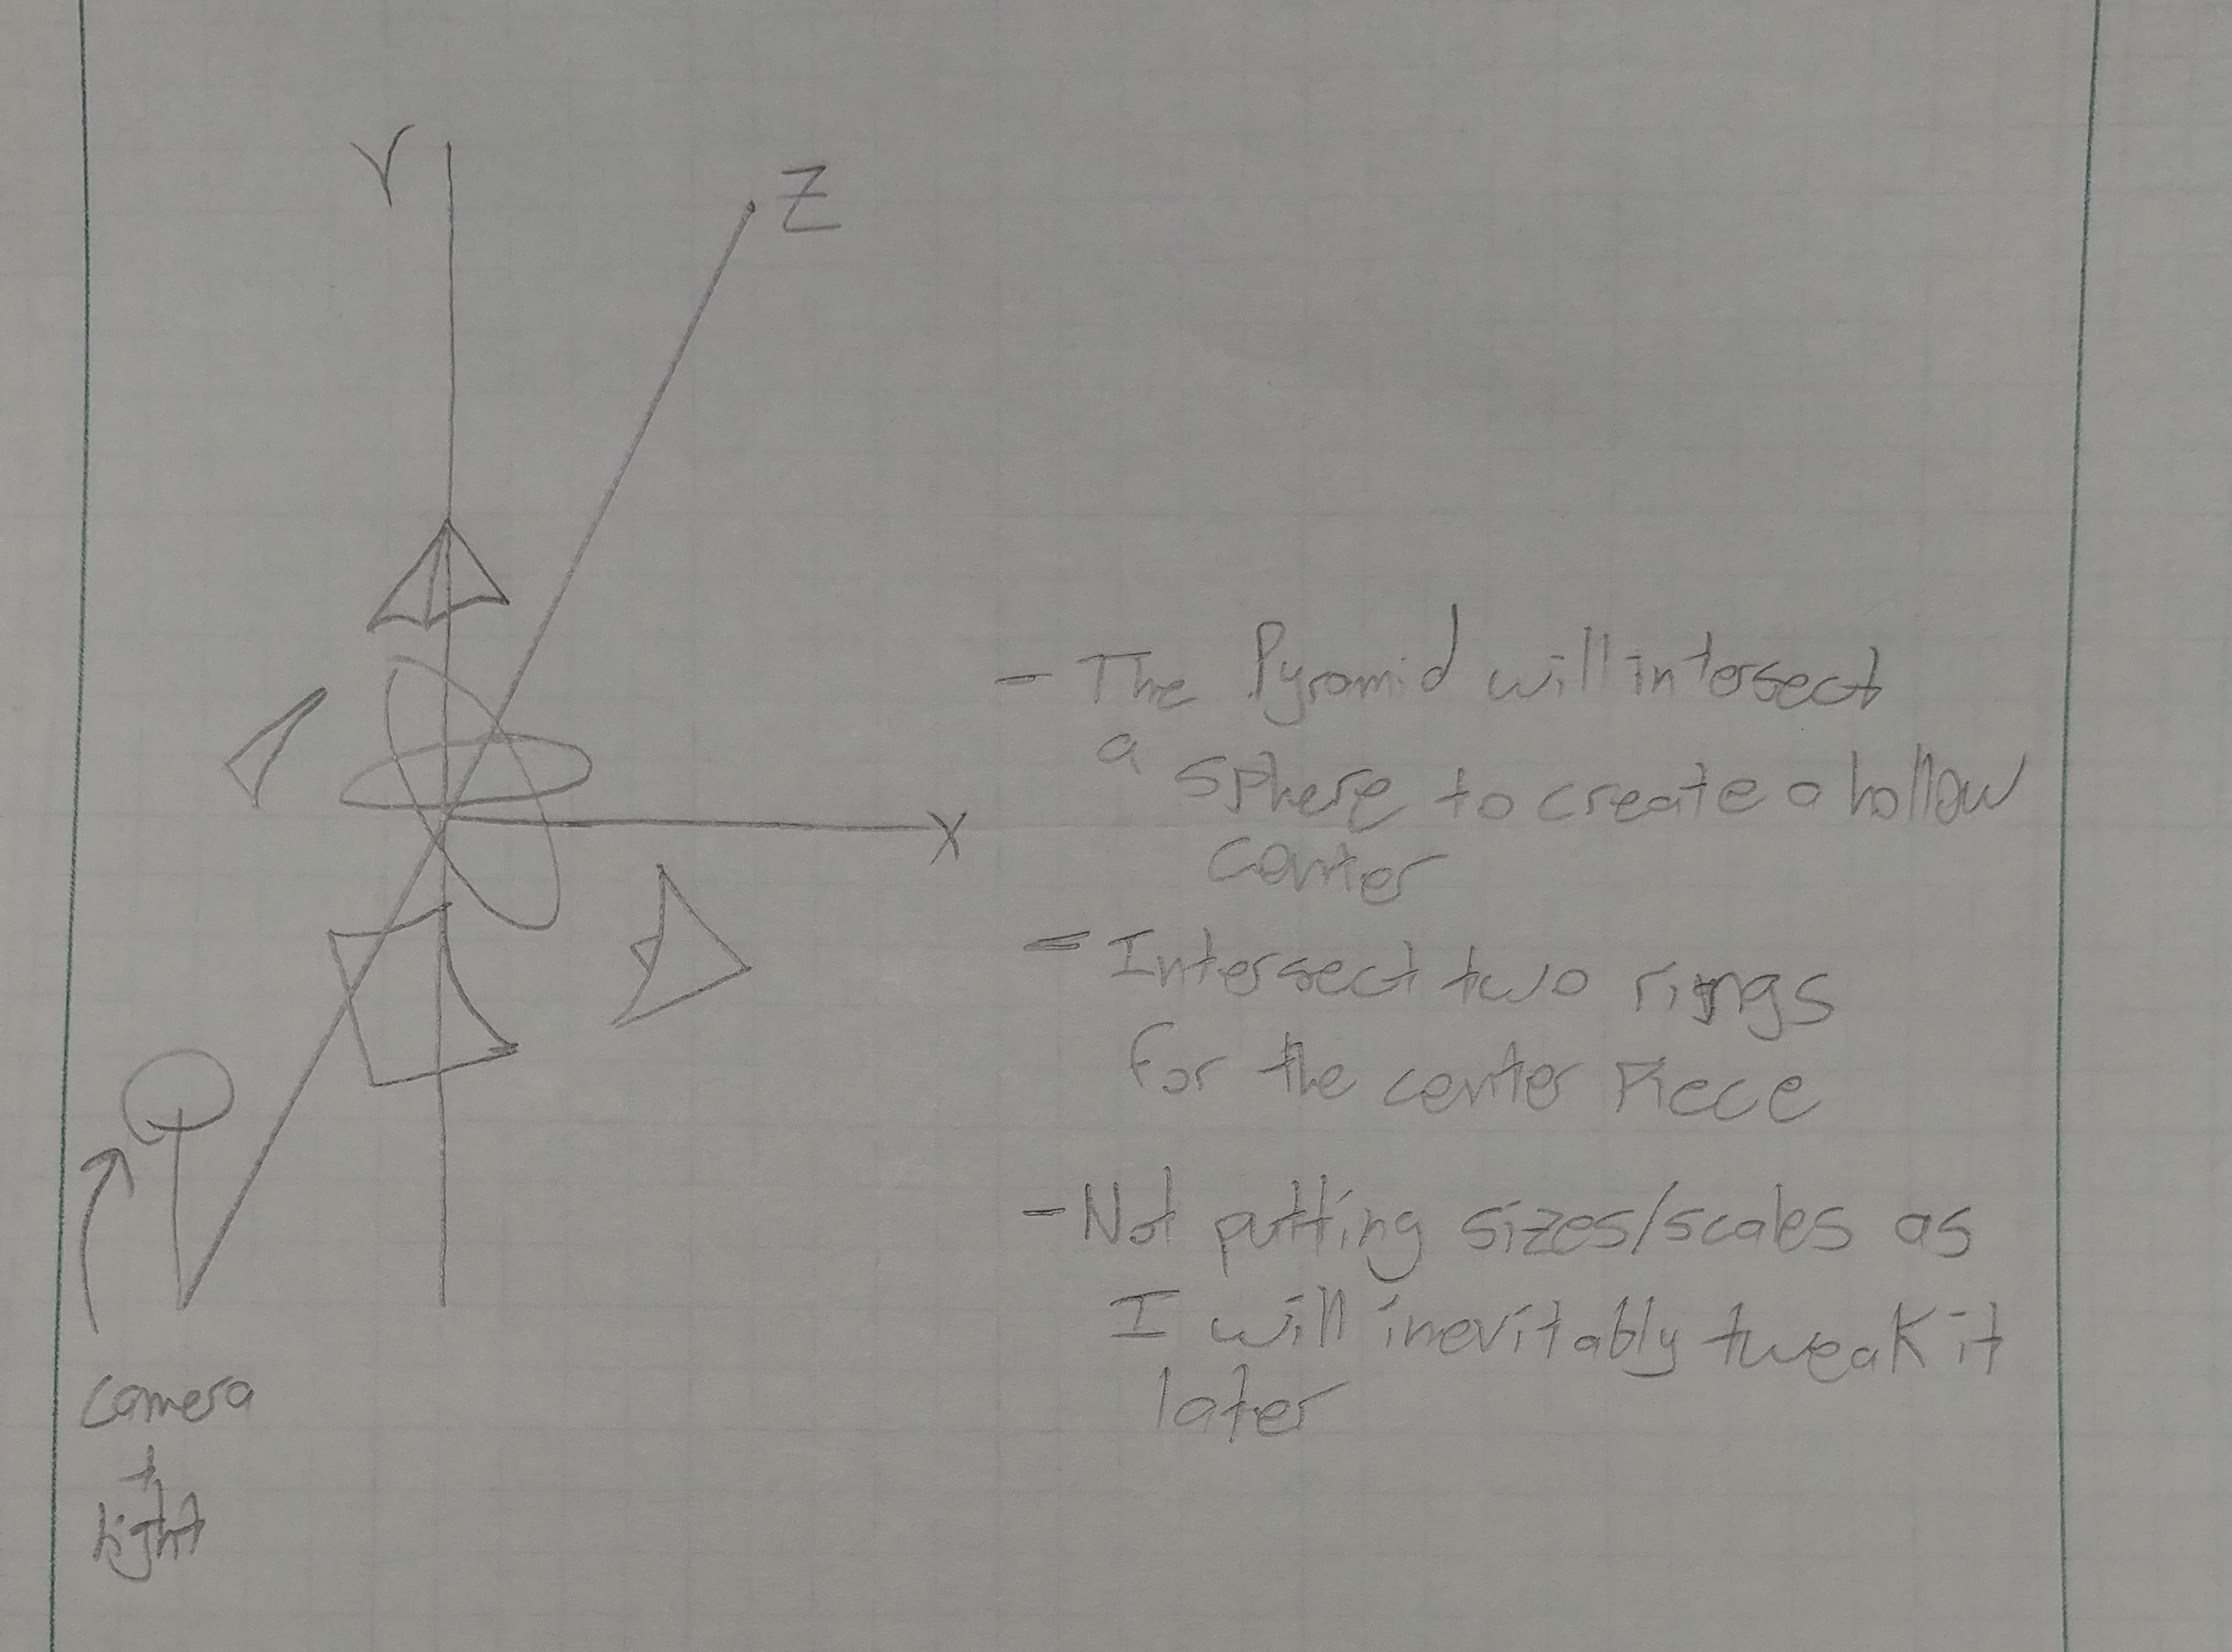 Y
Z
X
- The Pyramid will intersect
a sphere to create a hollow
center
- Intersect two rings
for the center Piece
- Not putting sizes/scales as
I will inevitably tweak it
later
camera
+
light